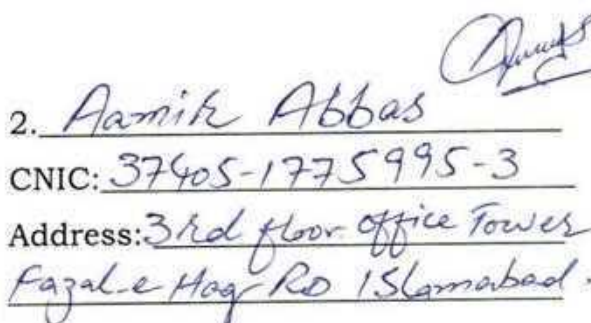 2. Aamir Abbas
CNIC: 37405-1775995-3
Address: 3rd floor office Tower
Fazal-e Haq RD ISlamabad.